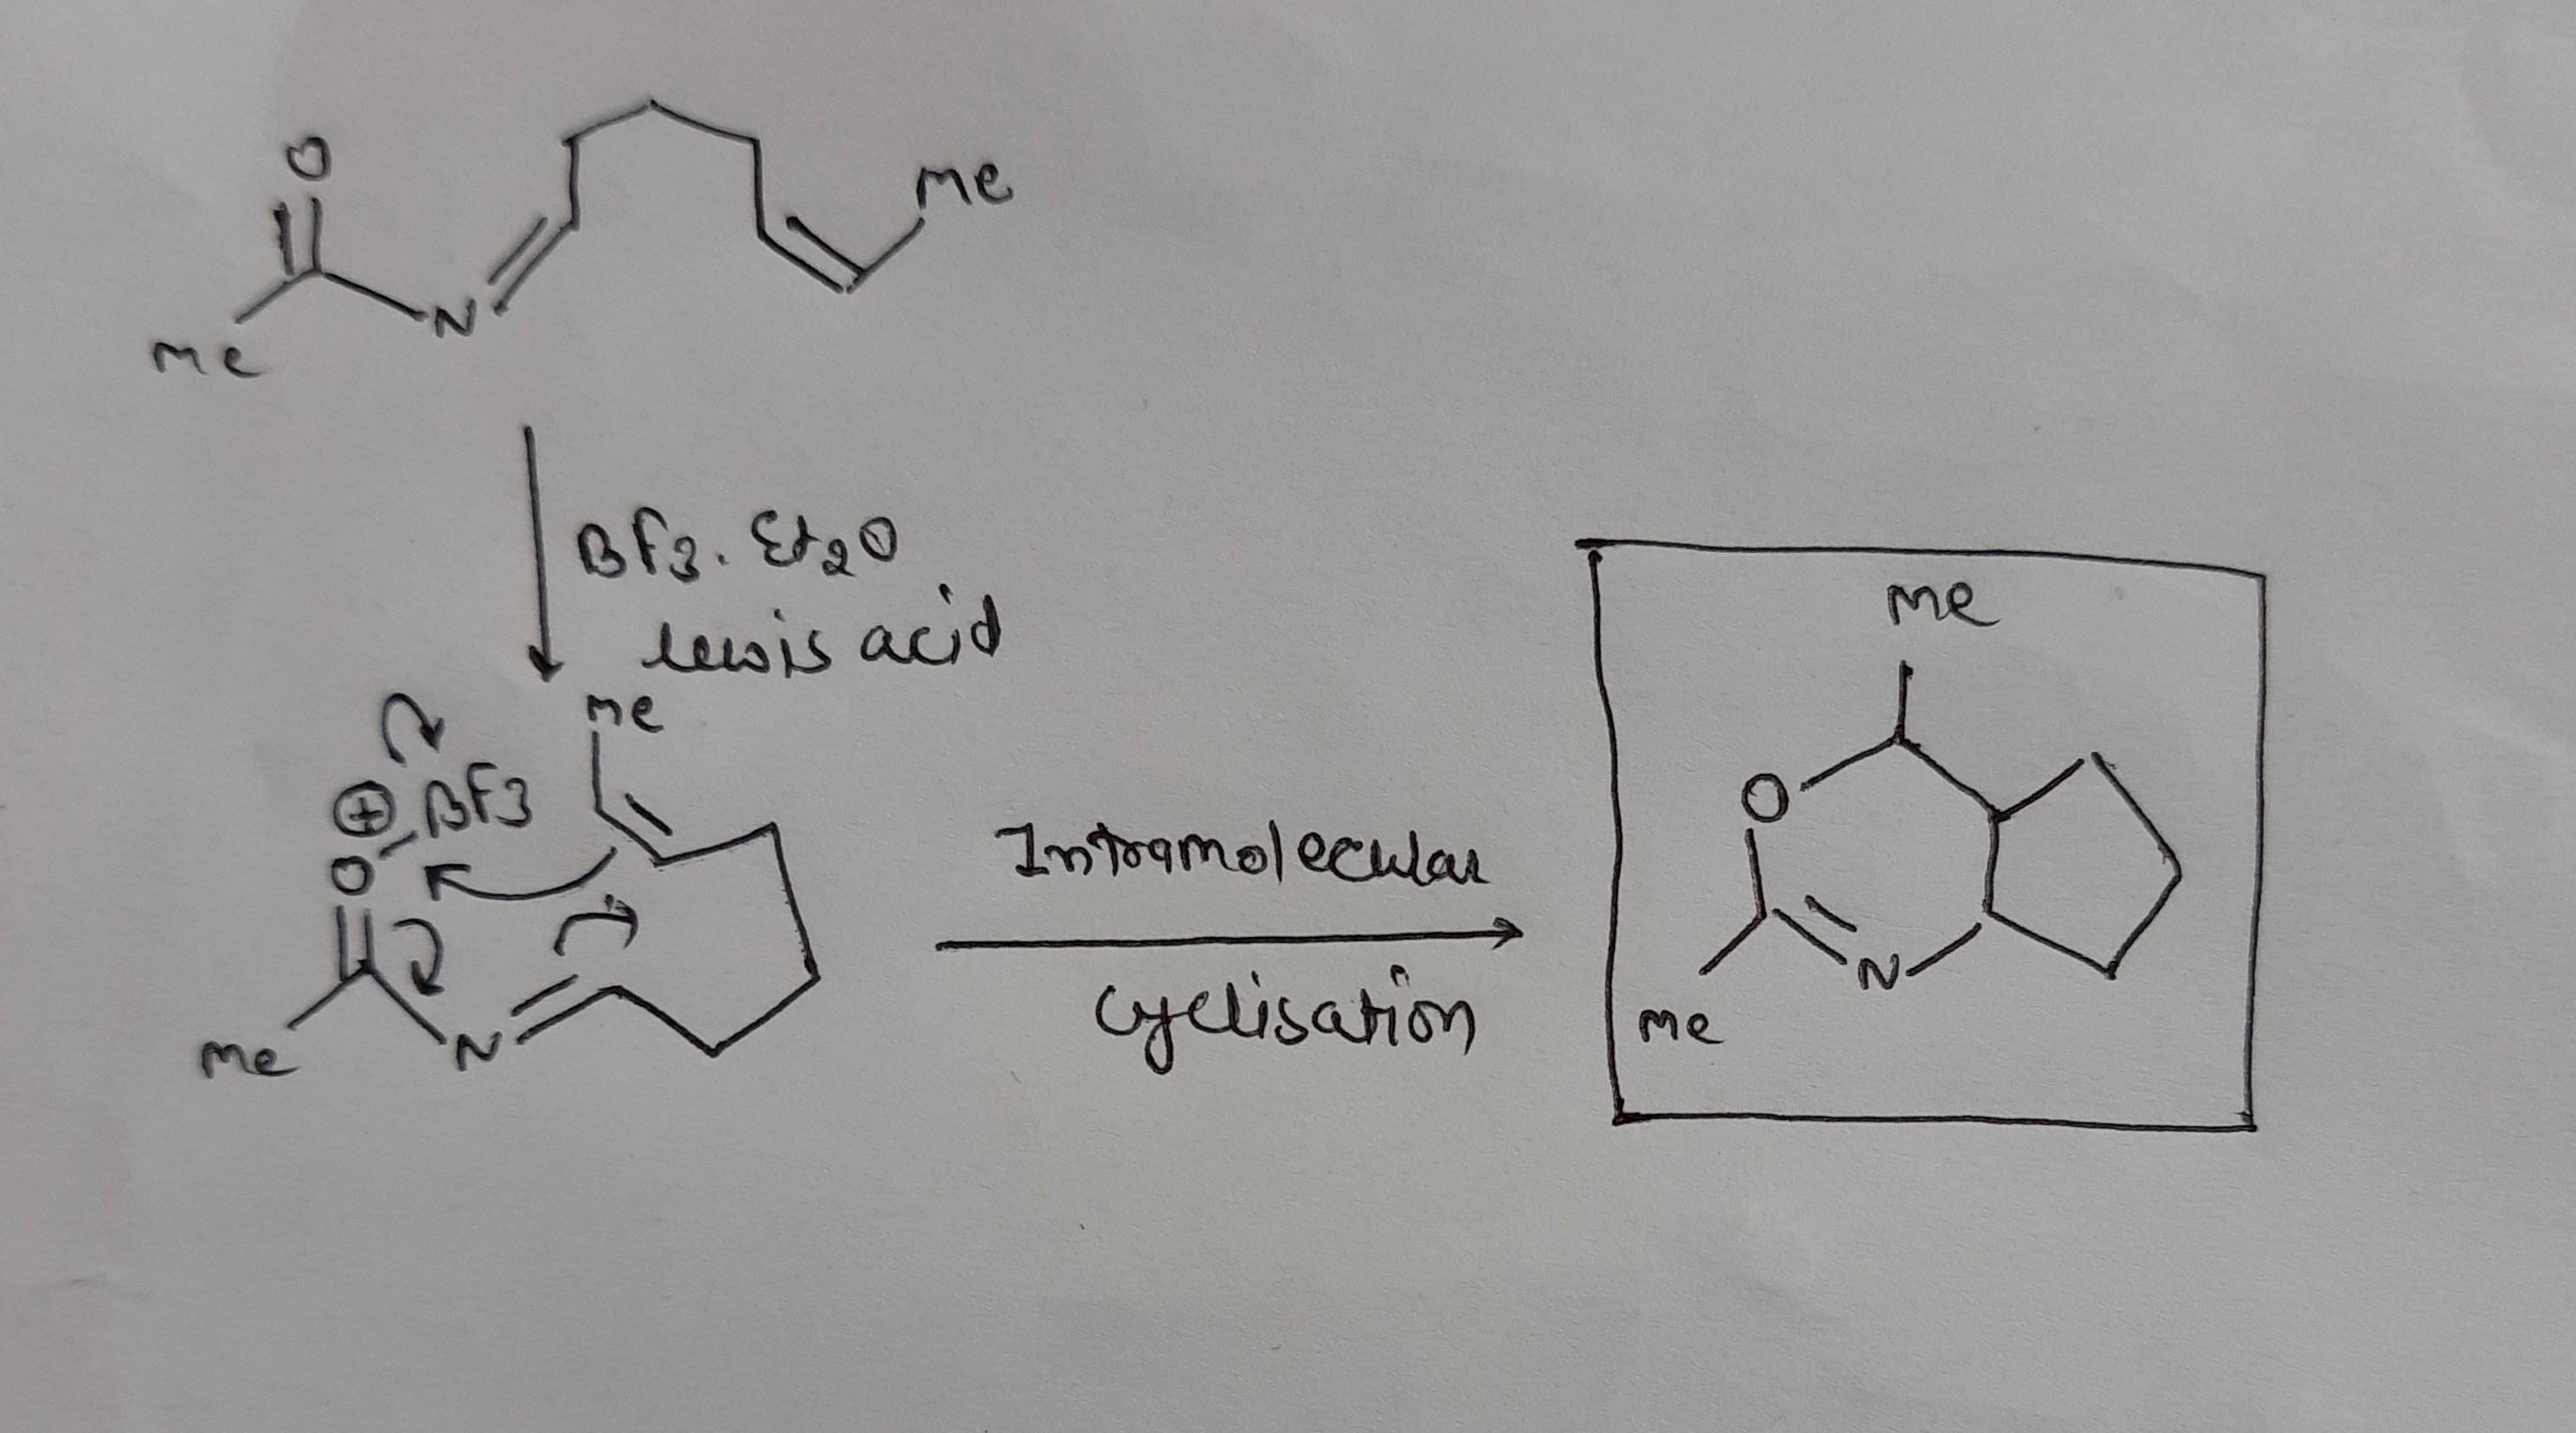 O
Me
N
Me
BF3. Et2O
lewis acid
Me
⊕ BF3
O
N
Me
Intramolecular
cyclisation
Me
O
N
Me